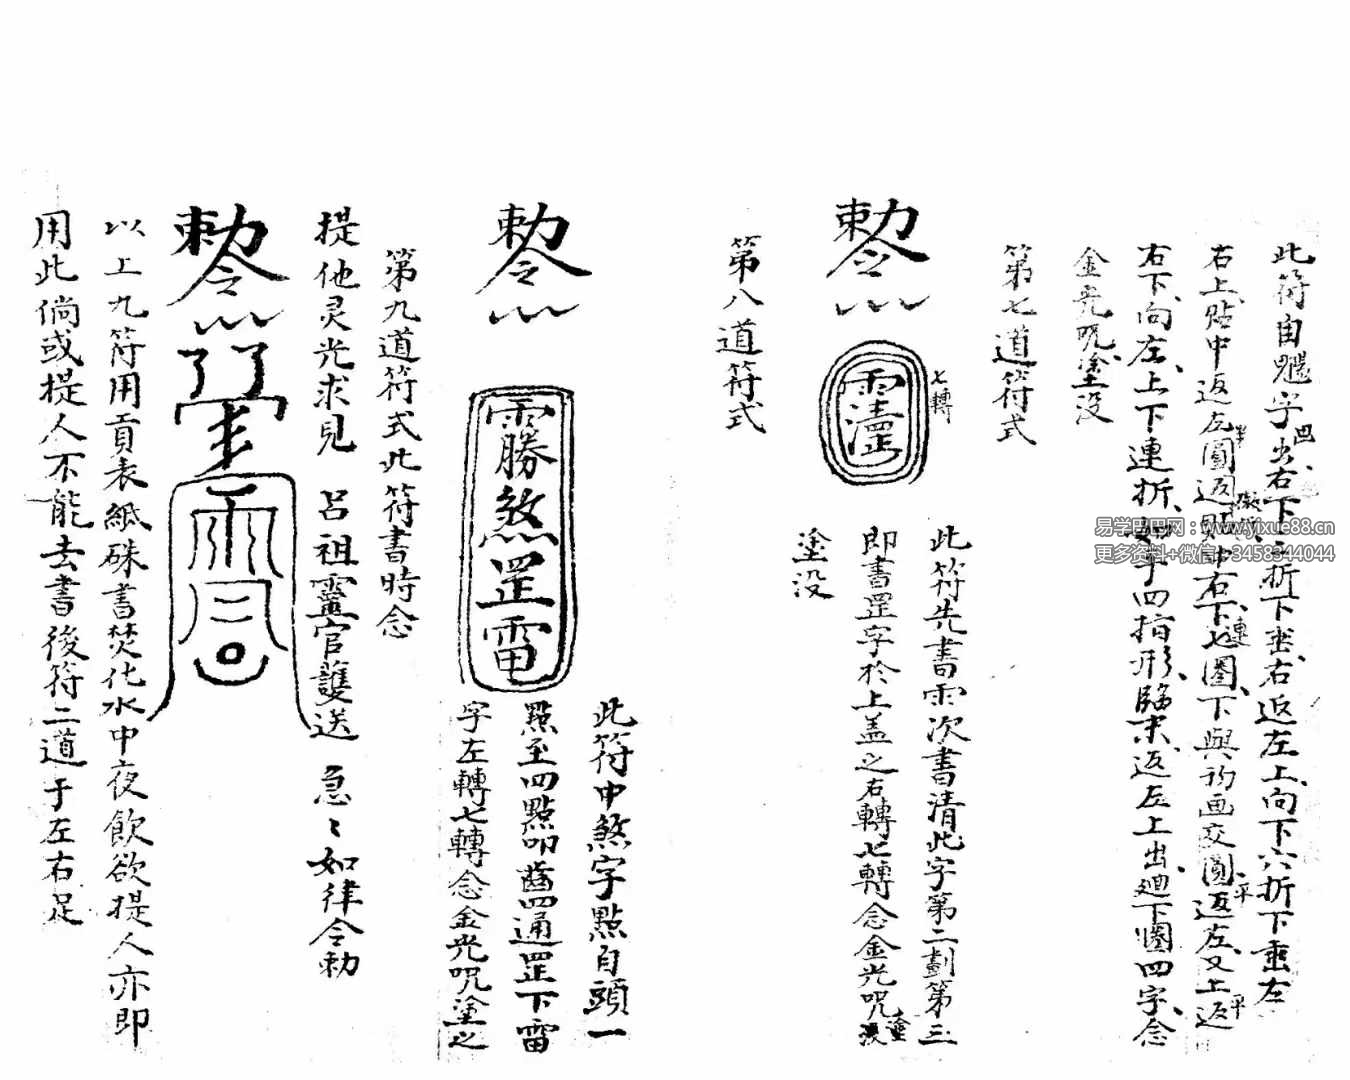 此符自魒字出右下六折下垂右返左上向下六折下垂左
右上貼中返左圓返貼中右下七圈下與初画交圓返左又上返
右下向左上下連折如字四指形臨末返左上出廻下圈四字念
金光咒塗没
第七道符式
勅令
七轉
此符先書雨次書清此字第二劃第三
即書罡字於上盖之右轉七轉念金光咒塗没
塗没
第八道符式
勅令
霶煞罡雷
此符中煞字點自頭一
點至四點叩齒四通罡下雷
字左轉七轉念金光咒塗之
第九道符式此符書時念
提他灵光求見 呂祖靈官護送 急々如律令勅
勅令
以上九符用貢表紙硃書焚化水中夜飲欲提人亦即
用此倘或提人不能去書後符二道于左右足
易学巴巴网：www.yixue88.cn
更多资料+微信：3458344044